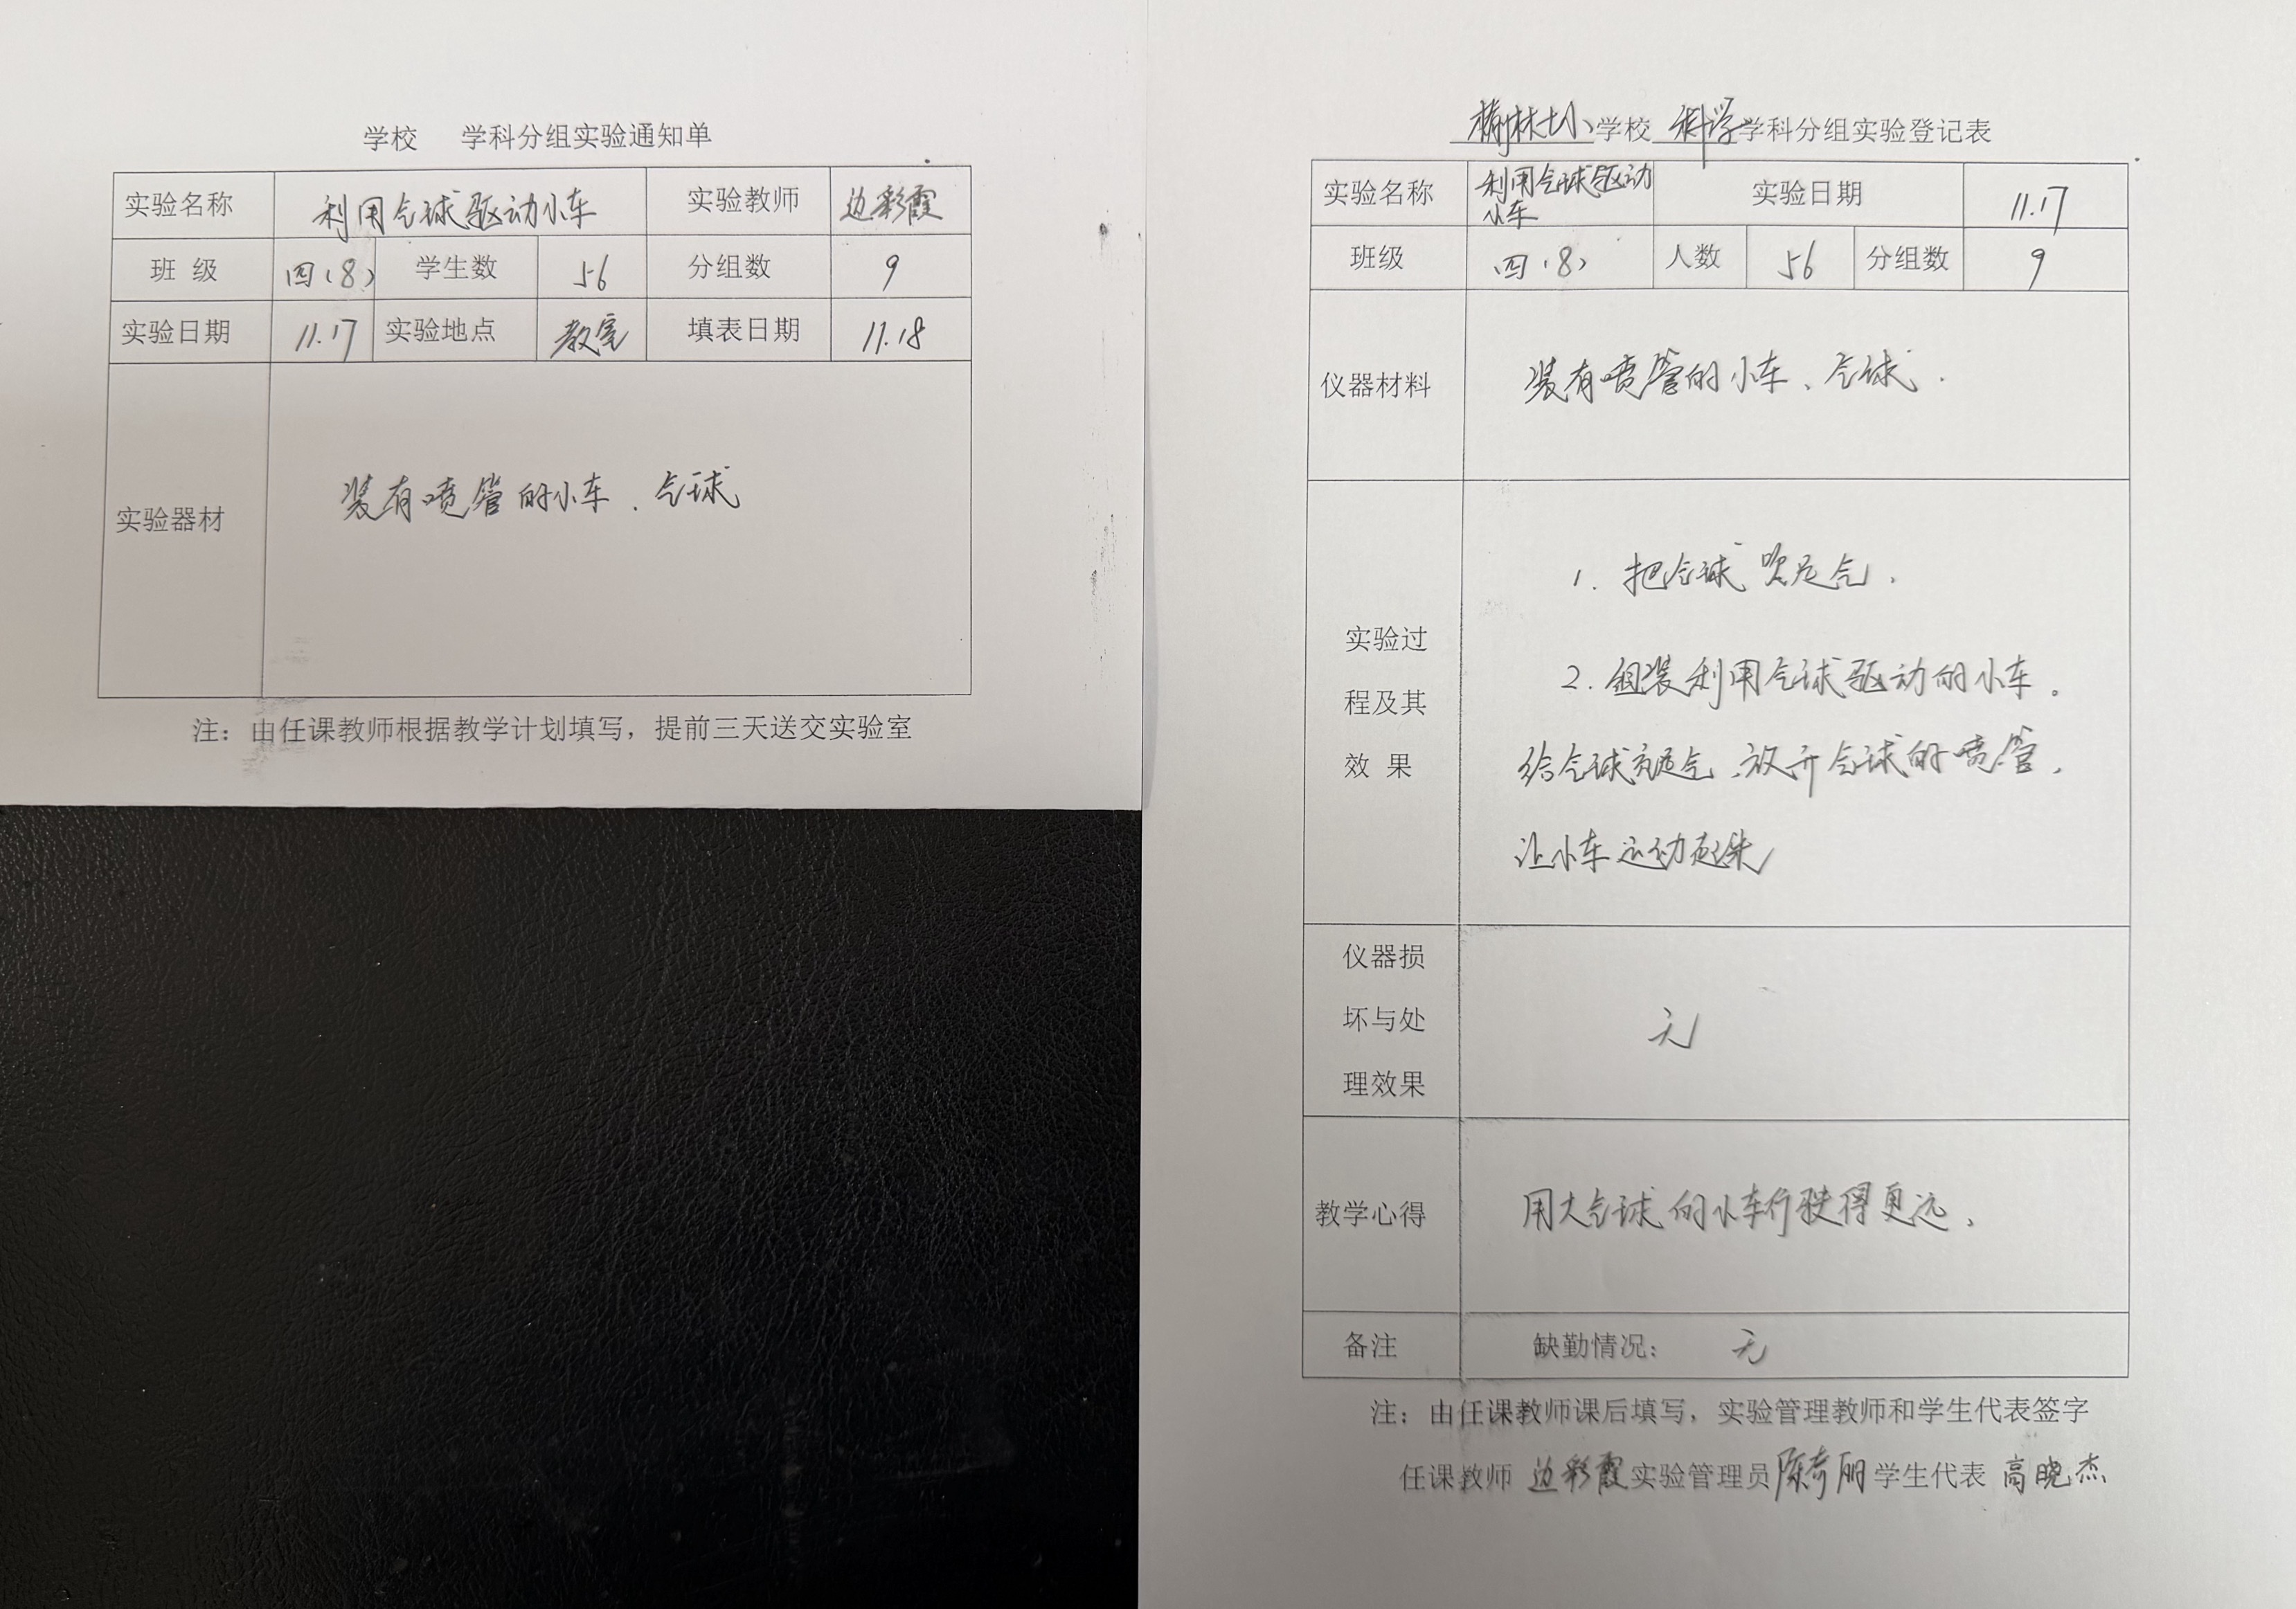 学校 学科分组实验通知单
实验名称 利用气球驱动小车 实验教师 边彩霞
班 级 四(8) 学生数 56 分组数 9
实验日期 11.17 实验地点 教室 填表日期 11.18
实验器材 装有喷管的小车、气球
注：由任课教师根据教学计划填写，提前三天送交实验室
学校 科学 学科分组实验登记表
实验名称 利用气球驱动
小车 实验日期 11.17
班级 四(8) 人数 56 分组数 9
仪器材料 装有喷管的小车、气球.
实验过
程及其
效 果
1. 把气球吹足气.
2. 组装利用气球驱动的小车.
给气球充足气.放开气球的喷管,
让小车运动起来
仪器损
坏与处
理效果
无
教学心得 用大气球的小车行驶得更远.
备注 缺勤情况： 无
注：由任课教师课后填写，实验管理教师和学生代表签字
任课教师 边彩霞 实验管理员 陈奇丽 学生代表 高晓杰